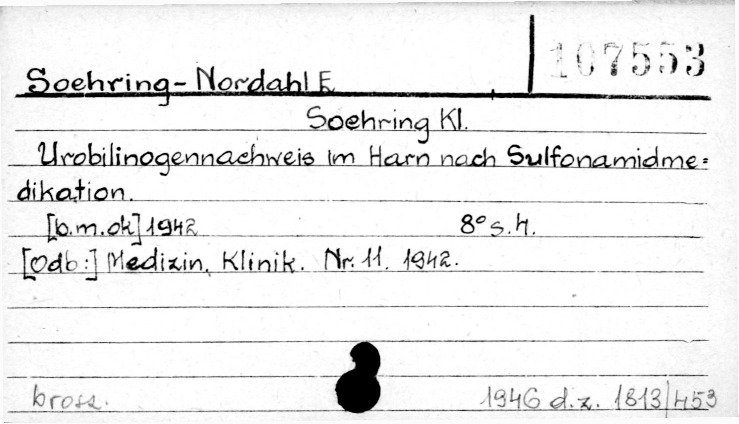 107553
Soehring-Nordahl E.
Soehring Kl.
Urobilinogennachweis im Harn nach Sulfonamidme=
dikation.
[b.m.ok] 1942 8° s.4.
[Odb:] Medizin. Klinik. Nr. 11. 1942.
brosz. 1946 d.z. 1813/453